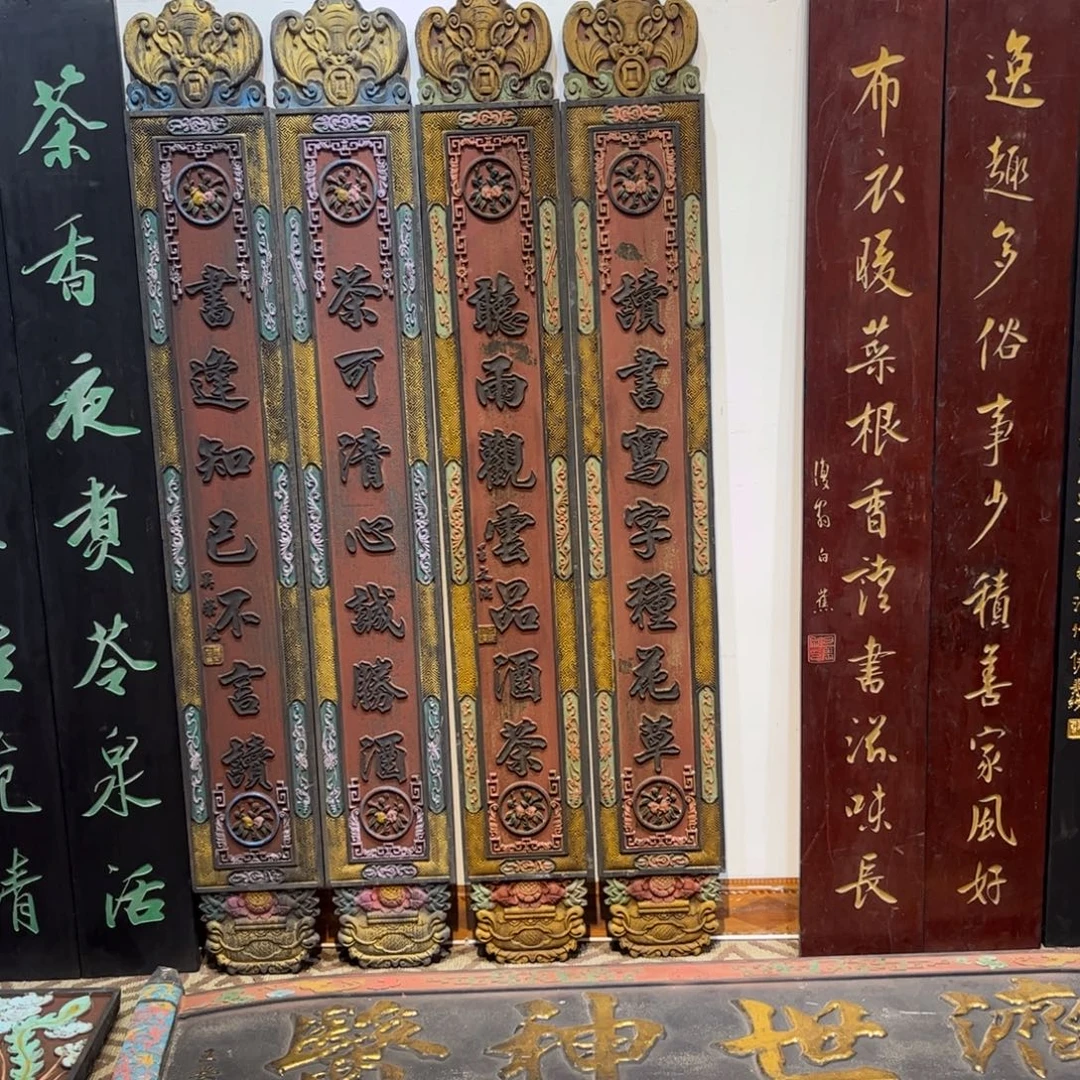 逸趣多俗事少積善家風好
布衣暖菜根香讀書滋味長
復翁白蕉
讀書寫字種花草
聽雨觀雲品酒茶
茶可清心誠勝酒
書逢知己不言讀
茶香夜煮苓泉活
濟世神醫